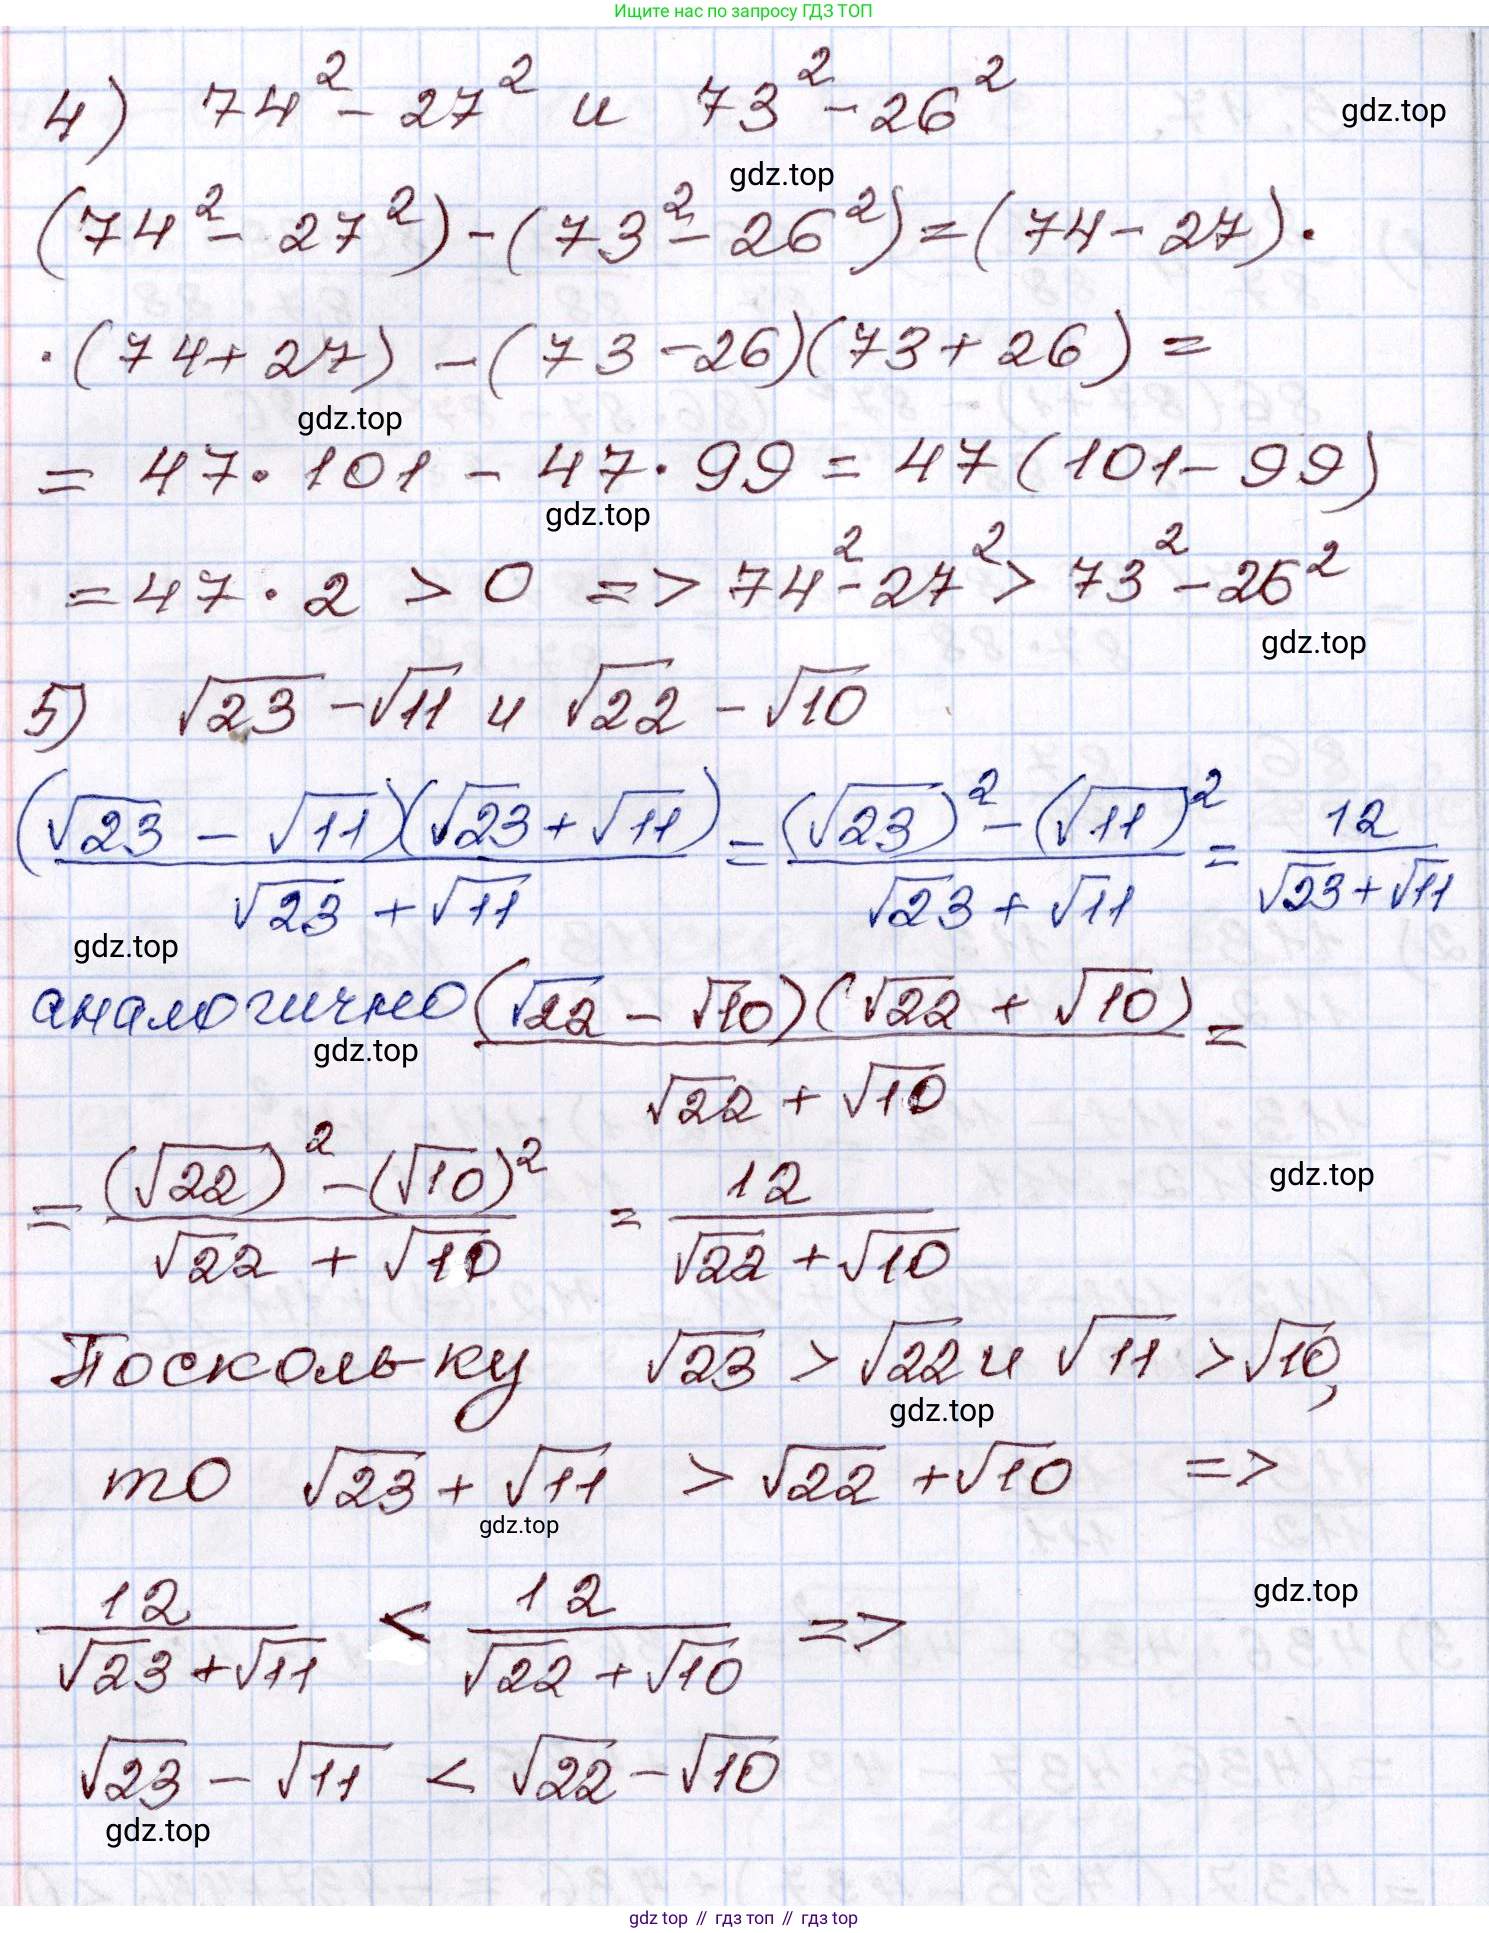 Ищите нас по запросу ГДЗ ТОП
4) 74² - 27² и 73² - 26²
gdz.top
gdz.top
(74² - 27²) - (73² - 26²) = (74 - 27) ·
· (74 + 27) - (73 - 26)(73 + 26) =
gdz.top
= 47 · 101 - 47 · 99 = 47 (101 - 99)
gdz.top
= 47 · 2 > 0 => 74² - 27² > 73² - 26²
gdz.top
5) √23 - √11 и √22 - √10
(√23 - √11)(√23 + √11) / √23 + √11 = (√23)² - (√11)² / √23 + √11 = 12 / √23 + √11
gdz.top
аналогично (√22 - √10)(√22 + √10) / √22 + √10 =
gdz.top
= (√22)² - (√10)² / √22 + √10 = 12 / √22 + √10
gdz.top
Поскольку √23 > √22 и √11 > √10,
gdz.top
то √23 + √11 > √22 + √10 =>
gdz.top
12 / √23 + √11 < 12 / √22 + √10 =>
gdz.top
√23 - √11 < √22 - √10
gdz.top
gdz top // гдз топ // gdz top